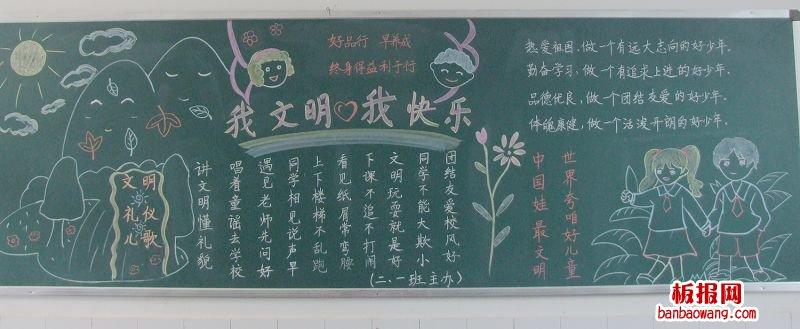 好品行 早养成
终身得益利于行
我文明我快乐
文明
礼仪
儿歌
讲文明懂礼貌
唱着童谣去学校
遇见老师先问好
同学相见说声早
上下楼梯不乱跑
看见纸屑常弯腰
下课不追不打闹
文明玩耍就是好
同学不能大欺小
团结友爱校风好
(二、一班主办)
中国娃 最文明
世界夸咱好儿童
热爱祖国,做一个有远大志向的好少年。
勤奋学习,做一个有追求上进的好少年。
品德优良,做一个团结友爱的好少年。
体魄康健,做一个活泼开朗的好少年。
板报网
banbaowang.com